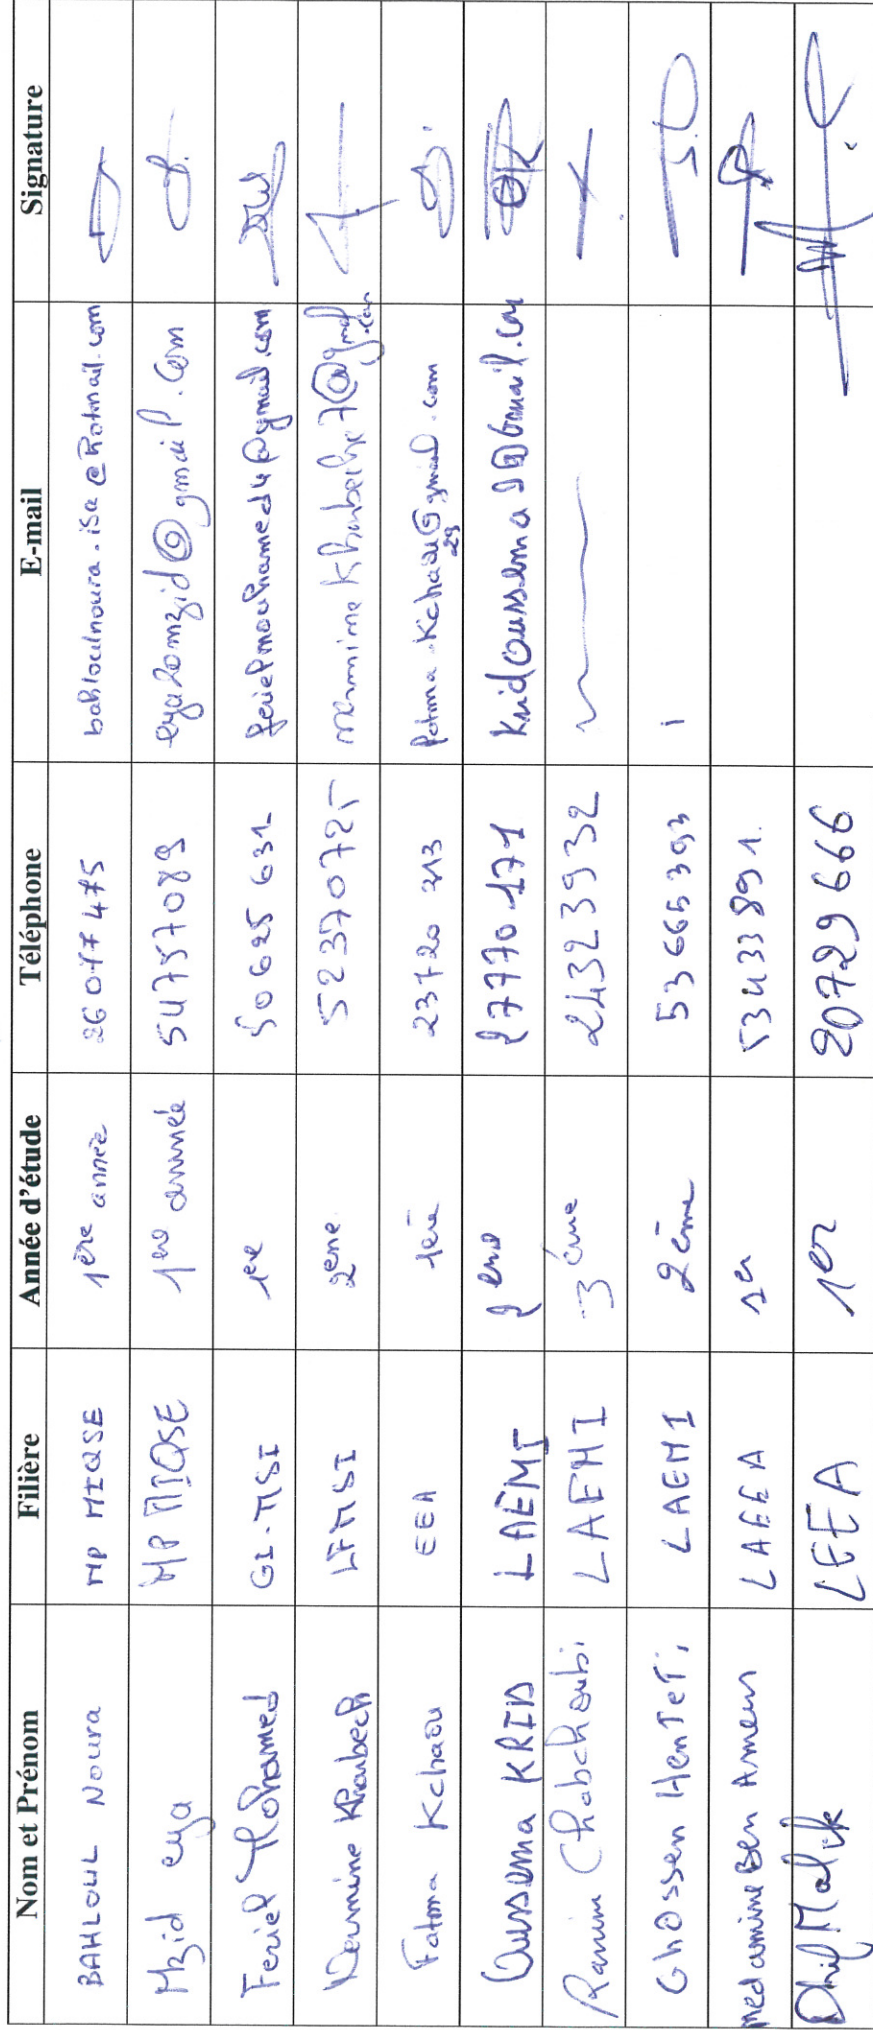 Nom et Prénom Filière Année d'étude Téléphone E-mail Signature
BAHLOUL Noura MP MIQSE 1ère année 26077475 bahloulnoura.isa@hotmail.com
Mzid eya MP MIQSE 1ere année 54757089 eya20mzid@gmail.com
Feriel Mohamed GI-MSI 1ere 50625631 ferielmouhamed4@gmail.com
Nermine Kharbech LFMSI 2eme 52370725
Fatma Kchaou EEA 1ère 23720313
Oussema KRID LAEMI 2eme 27770171
Ranim Chabchoubi LAEMI 3éme 24323932
Ghossen HenTeTi LAEMI 2éme 53665393
med amine Ben Ameur LAEEA 1er 53433891
Dhif Malik LEEA 1er 20729666